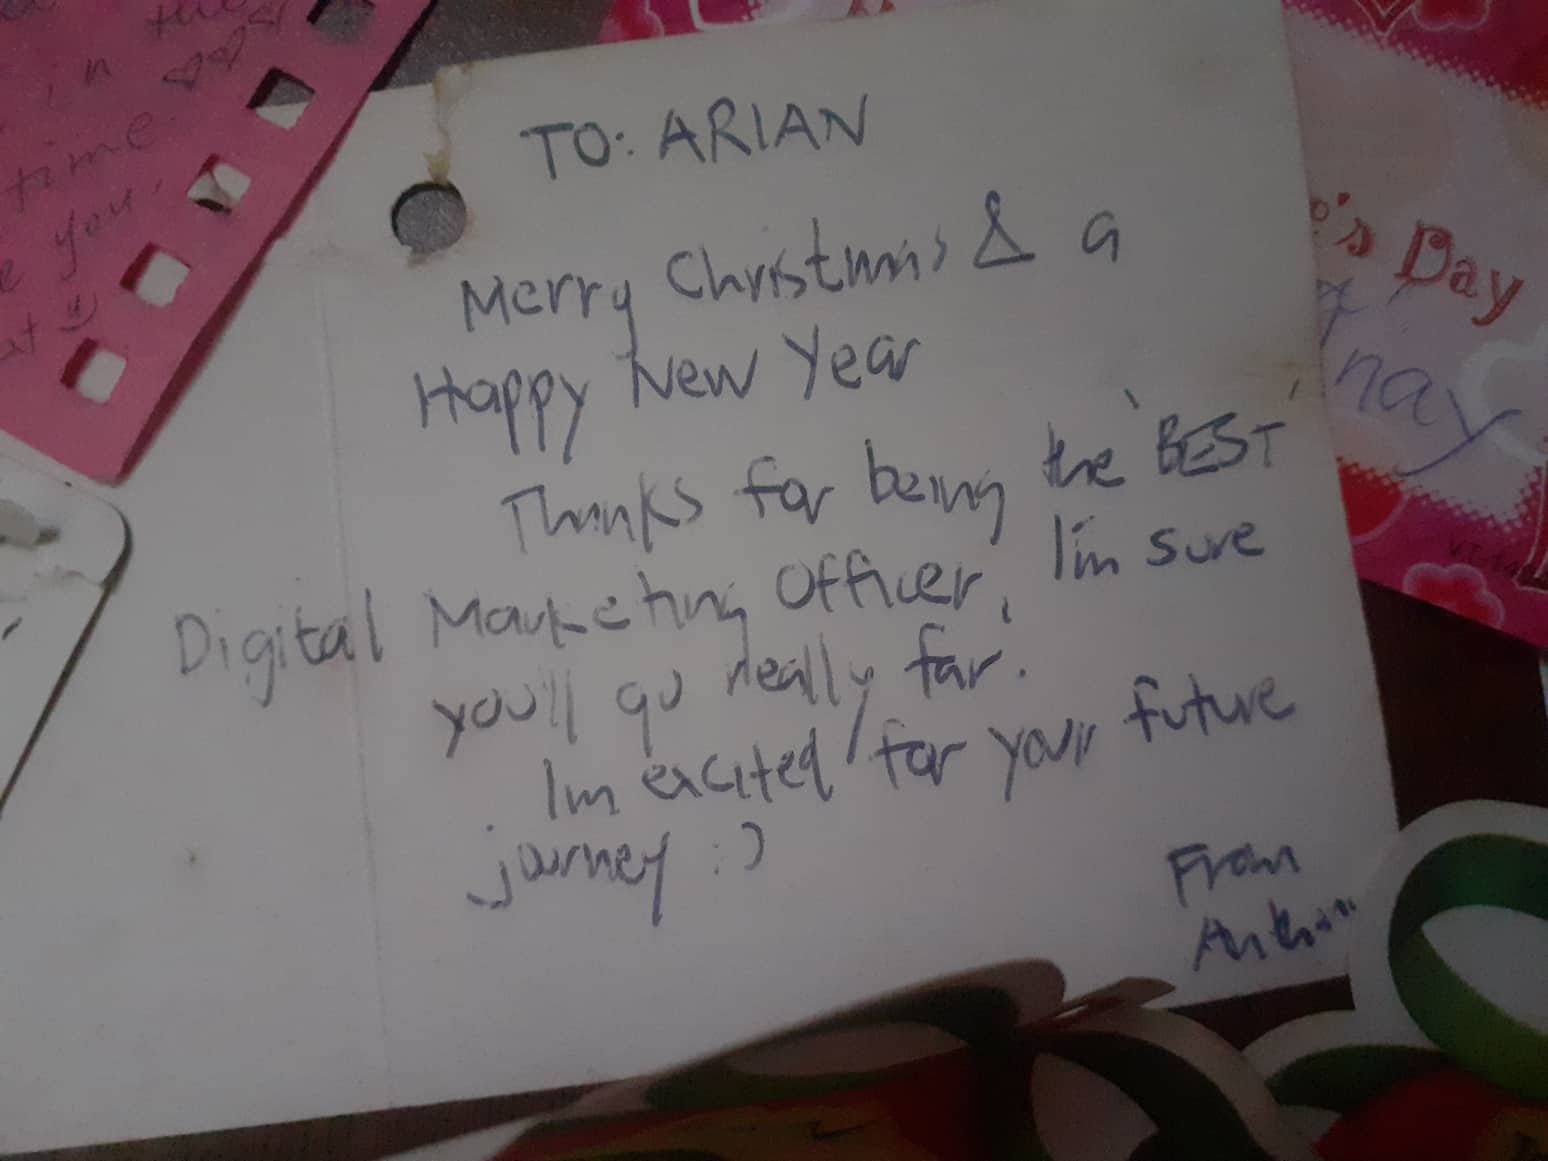 in the
time.
you,
TO: ARIAN
Merry Christmas & a
Happy New Year
Thanks for being the 'BEST'
Digital Marketing Officer, I'm sure
you'll go really far.
Im excited for your future
journey :)
From
's Day
nay